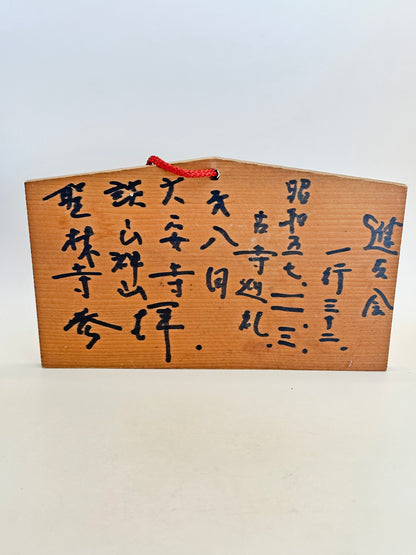 会
一行三十二.
昭和五七.一一.三.
古寺巡礼.
才八回
大安寺拝.
談山神社
聖林寺参